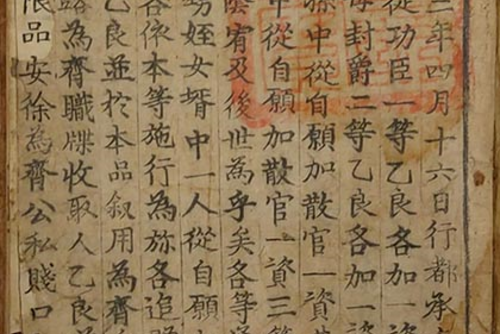 三年四月十六日行都承
從功臣一等乙良各加一
母封爵二等乙良各加一資
中從自願加散官一資
中從自願加散官一資三等
蔭宥及後世為乎矣各等
甥姪女壻中一人從自願
各依本等施行為旀各追
乙良並於本品叙用為齊
為齊職牒收取人乙良
限品安徐為齊公私賤口